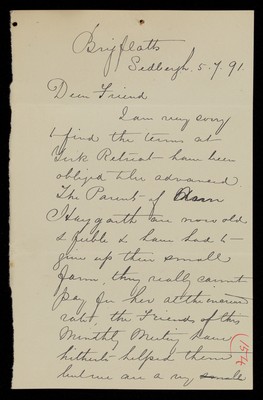 Brigflatts
Sedbergh. 5.7.91.
Dear Friend
I am very sorry
to find the terms at
York Retreat have been
obliged to be advanced.
The Parents of
Haygarth are now old
& feeble & have had to
give up their small
farm, they really cannot
pay for her at the
rate, the Friends of this
Monthly Meeting have
hitherto helped them
but we are a very small